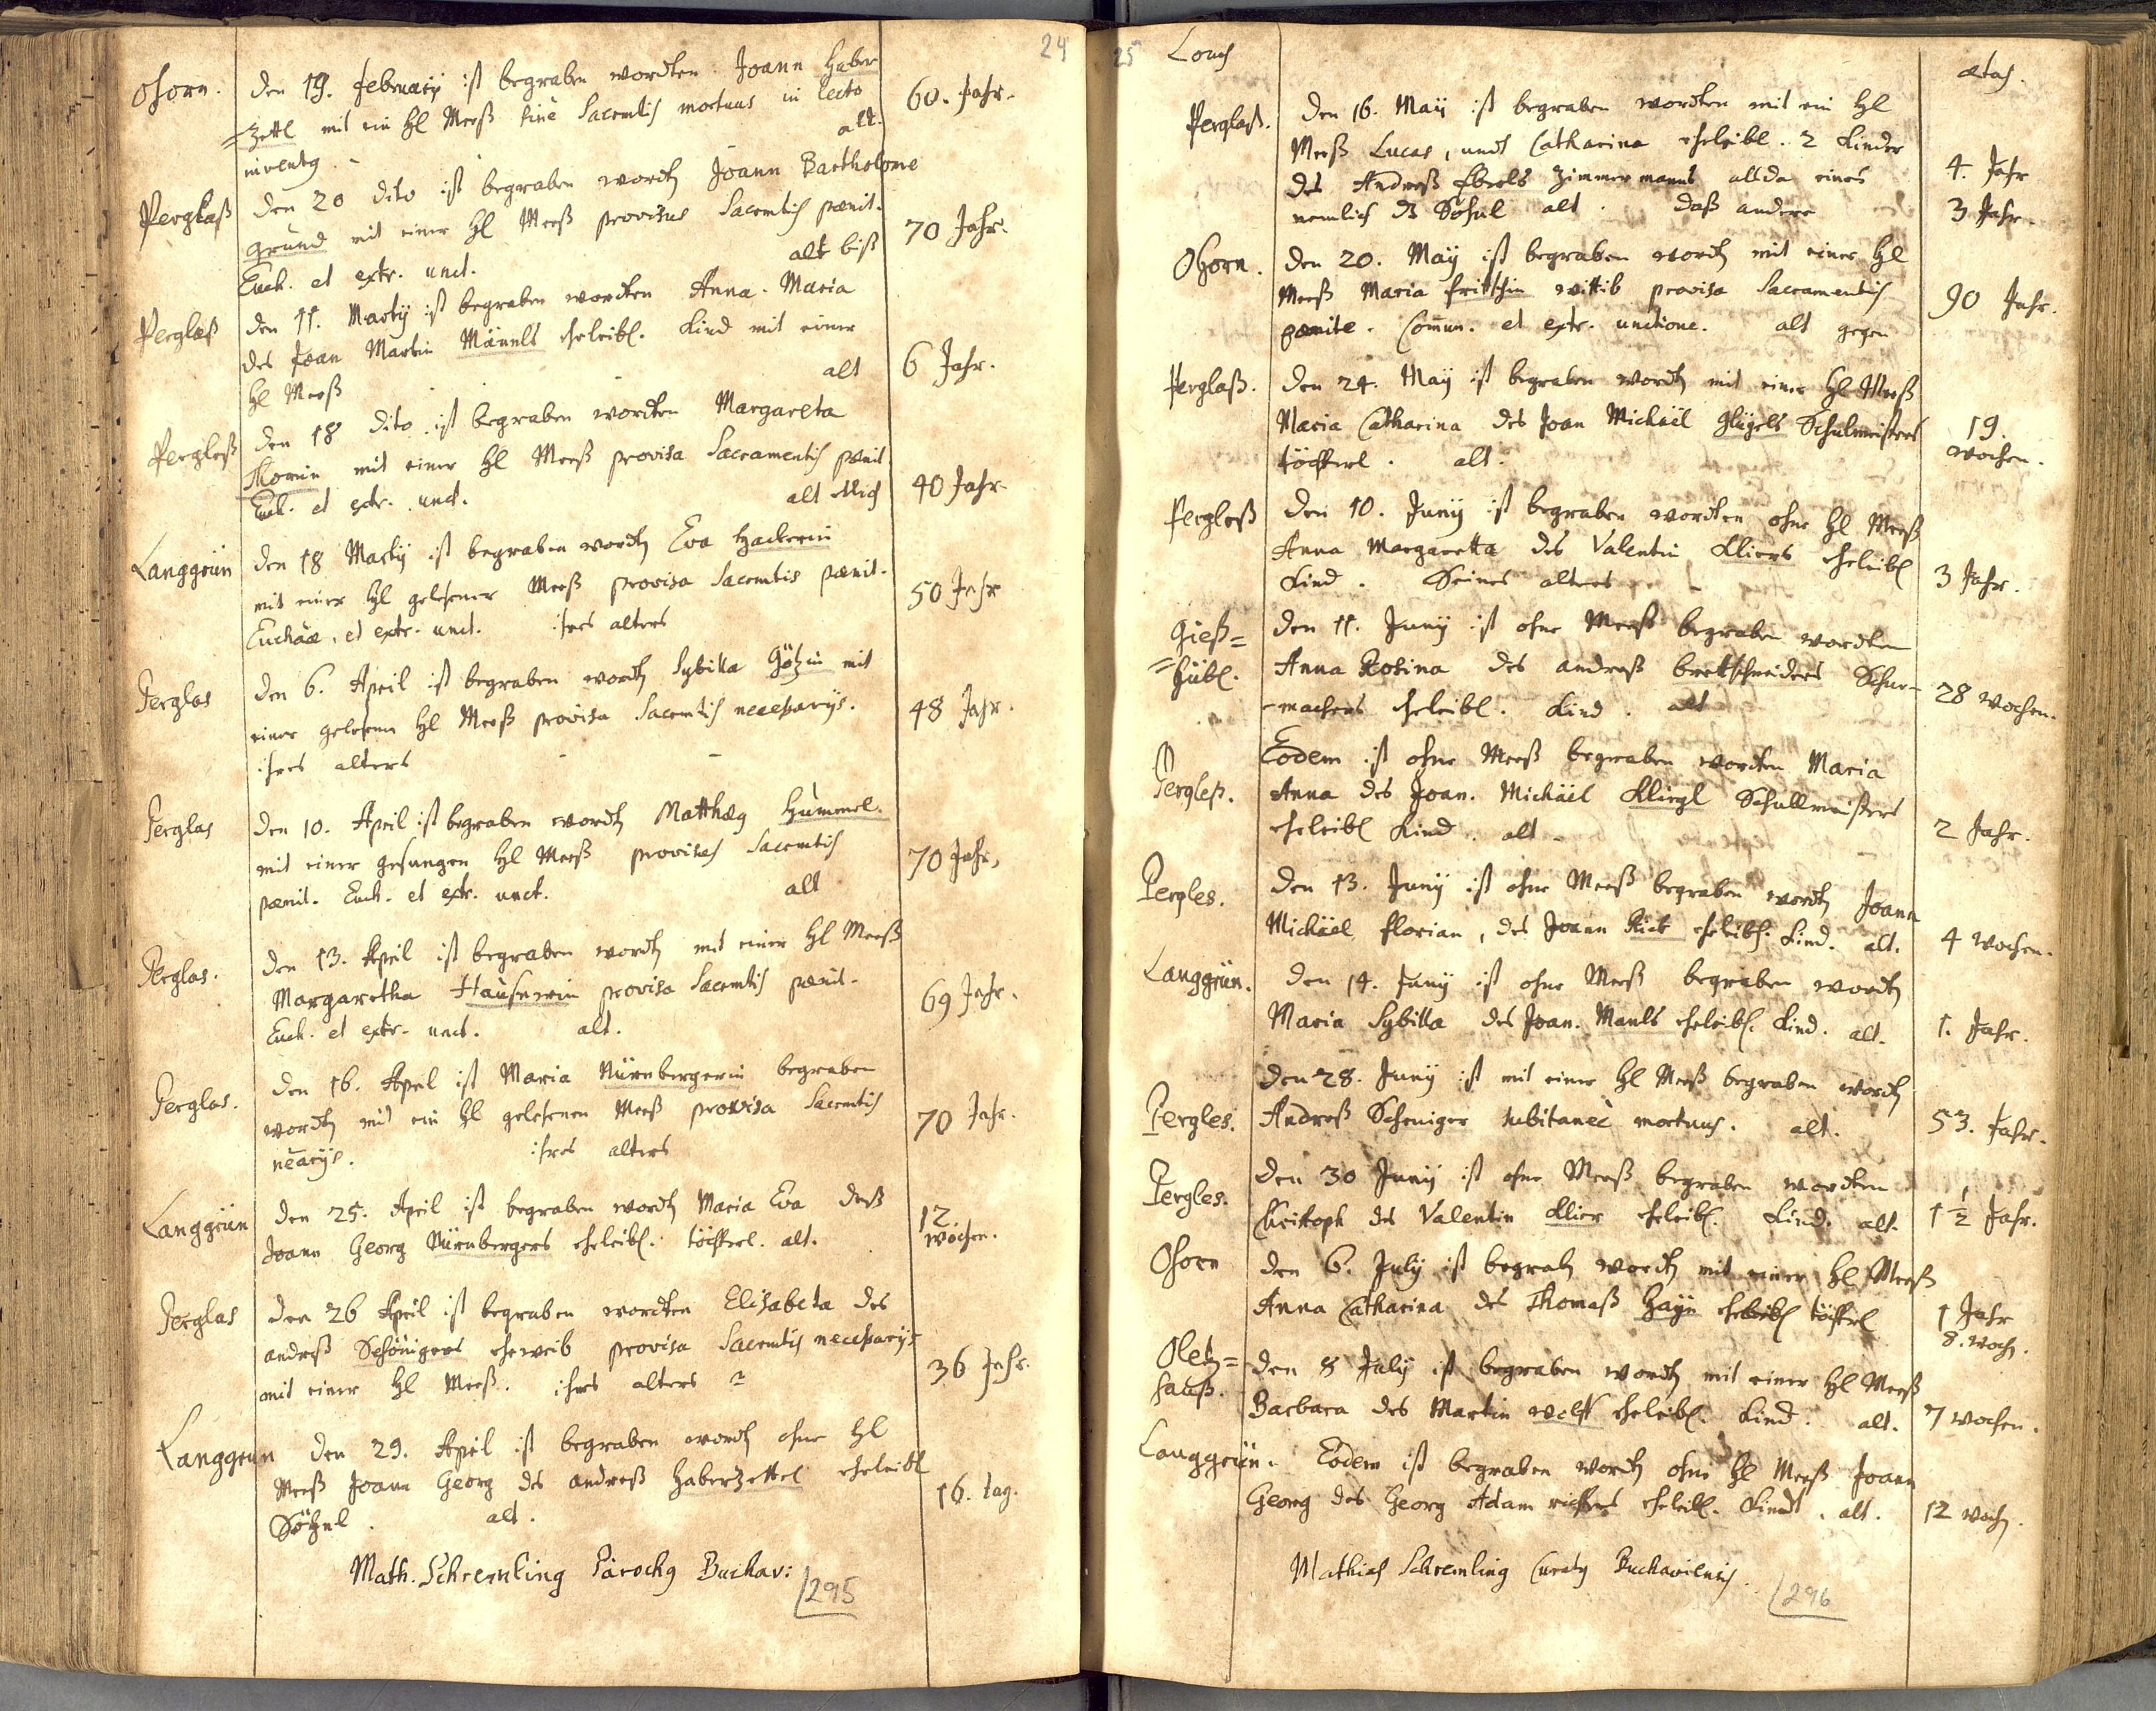 24
Ohorn.
den 19. february ist begraben wordten Joann Haber
=Zettl mit ein hl Meeß sine Sacemtis mortuus in lecto
inventg. alt.
60. Jahr.
Perglaß
den 20 dito ist begraben wordtn Joann Bartholome
grund mit einer hl Meeß provisus Sacemtis pœnit.
Euch. et extr. unct. alt biß
70 Jahr.
Perglaß
den 11. Marty ist begraben wordten Anna Maria
des Joan Martin Männls eheleibl. Kind mit einer
hl Meeß alt
6 Jahr.
Pergleß
den 18 dito ist begraben wordten Margareta
Thomin mit einer hl Meeß provisa Sacramentis pœnit
Euch. et extr. unct. alt etlich
40 Jahr.
Langgrün
den 18 Marty ist begraben wordtn Eva Hackerin
mit einer hl gelesener Meeß provisa Sacemtis pœnit.
Euchãæ, et extr. unct. ihres alters
50 Jahr
Perglas
den 6. April ist begraben wordtn Sybilla Götzin mit
einer gelesenen hl Meeß provisa Sacemtis necessarys.
ihres alters
48 Jahr.
Perglas
den 10. April ist begraben wordtn Matthæg Hummel.
mit einer gesungen hl Meeß provisus Sacemtis
pœnit. Euch. et extr. unct. alt
70 Jahr,
Perglas.
den 13. April ist begraben wordtn mit einer hl Meeß
Margaretha Hausnerin provisa Sacemtis pœnit.
Euch. et extr. unct. alt.
69 Jahr.
Perglas.
den 16. April ist Maria Nürnbergerin begraben
wordtn mit ein hl gelesenen Meeß provisa Sacemtis
nẽarys. ihres alters
70 Jahr.
Langgrün
den 25. April ist begraben wordtn Maria Eva deß
Joann Georg Nürnbergers eheleibl. töchterl. alt.
12.
wochen.
Perglas
den 26 April ist begraben wordten Elisabeta des
andreß Schönigers eheweib provisa Sacemtis necessarys
mit einer hl Meeß. ihres alters
36 Jahr.
Langgrun
den 29. April ist begraben wordtn ohne hl
Meeß Joann Georg des andreß Haberzettel eheleibl
Söhnl. alt.
16. tag.
Math. Schremling Parochg Buchav:
295
25
Louch
ætas.
Perglaß.
den 16. May ist begraben wordten mit ein hl
Meeß Lucas, undt Catharina eheleibl. 2 Kinder
des Andreß Eberls Zimmermanns allda eines
nemlich ds Söhnl alt. daß andere
4. Jahr
3 Jahr.
Ohorn.
den 20. May ist begraben wordtn mit einer hl
Meeß Maria frittschin wittib provisa Sacramentis
pœnite. Com̃un. et extr. unctione. alt gegen
90 Jahr.
Perglaß.
den 24. May ist begraben wordtn mit einer hl Meeß
Maria Catharina des Joan Michäel Glügels Schulmeisters
töchterl. alt.
19.
wochen.
Pergleß
den 10. Juny ist begraben wordten ohne hl Meeß
Anna Margaretta des Valentin Kliers eheleibl
Kind. Seines alters
3 Jahr.
Gieß=
=hübl.
den 11. Juny ist ohne Meeß begraben wordten
Anna Rosina des andreß brettschneiders Schue-
-machers eheleibl. Kind. alt
28 wochen.
Pergleß.
Eodem ist ohne Meeß begraben wordten Maria
Anna des Joan. Michäel Kliegl Schullmeisters
eheleibl Kind. alt
2 Jahr.
Pergles.
den 13. Juny ist ohne Meeß begraben wordtn Joann
Michäel florian, des Joann Rieb eheleibl. Kind. alt.
4 wochen.
Langgrün.
den 14. Juny ist ohne Meeß begraben wordtn
Maria Sybilla des Joan. Manls eheleibl. Kind. alt.
1. Jahr.
Pergles.
den 28. Juny ist mit einer hl Meeß begraben wordtn
Andreß Scheniger subitaneè mortuus. alt.
53. Jahr.
Pergles.
den 30 Juny ist ohne Meeß begraben wordten
Christoph des Valentin Klier eheleibl. Kind. alt.
1 1/2 Jahr.
Ohorn
den 6. July ist begrabn wordtn mit einer hl Meeß
Anna Catharina des Thomaß Hayn eheleibl töchterl
1 Jahr
8. woch.
Oletz=
hauß.
den 8 July ist begraben wordtn mit einer hl Meeß
Barbara des Martin wolff eheleibl. Kind. alt.
7 wochen.
Langgrün.
Eodem ist begraben wordtn ohne hl Meeß Joann
Georg des Georg Adam richters eheleibl. Kindt. alt.
12 wochn.
Mathias Schremling Curatg Buchaviensis.
296